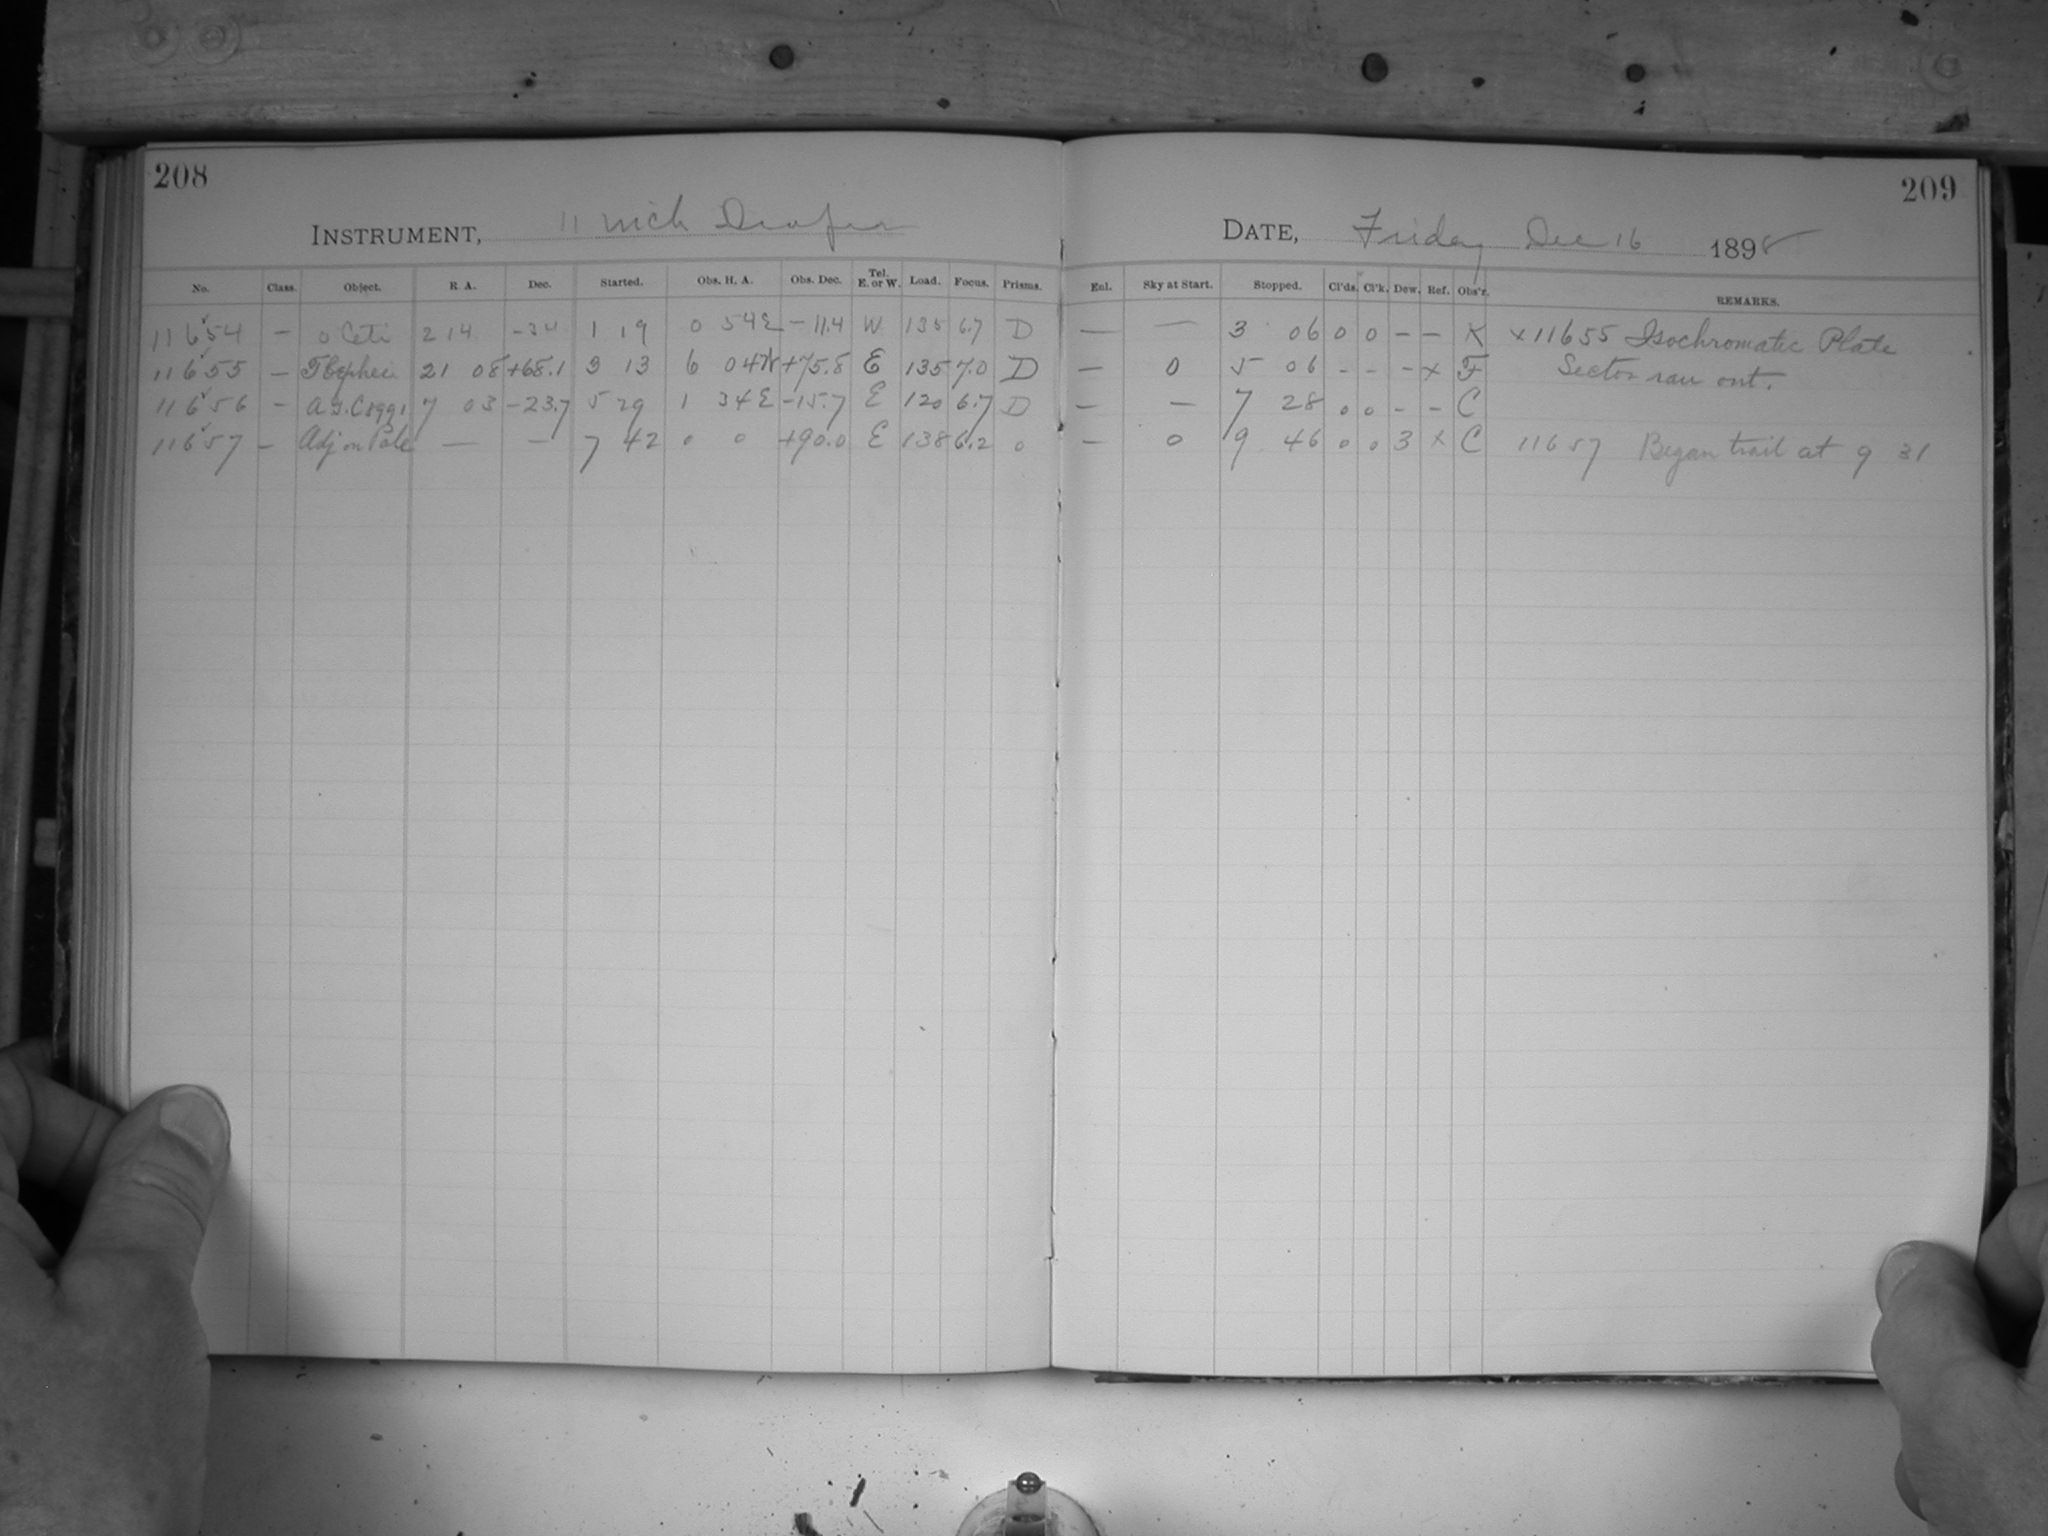 208
209
INSTRUMENT, 11 inch Draper
DATE, Friday Dec 16 1898
No. Class. Object. R. A. Dec. Started. Obs. H. A. Obs. Dec. Tel. E. or W. Load. Focus. Prisms. Enl. Sky at Start. Stopped. Cl'ds. Cl'k. Dew. Ref. Obs'r. REMARKS.
11654 — o Ceti 2 14 -34 1 19 0 54E -11.4 W 135 6.7 D — — 3 06 0 0 - - K x 11655 Isochromatic Plate
11655 — T Cephei 21 08 +68.1 3 13 6 04W +75.8 E 135 7.0 D — 0 5 06 - - - x F Sector ran out.
11656 - A.G.C 8991 7 03 -23.7 5 29 1 34E -15.7 E 120 6.7 D — — 7 28 0 0 - - C
11657 - Adj on Pole — — 7 42 0 0 +90.0 E 138 6.2 0 — 0 9 46 0 0 3 x C 11657 Began trail at 9 31